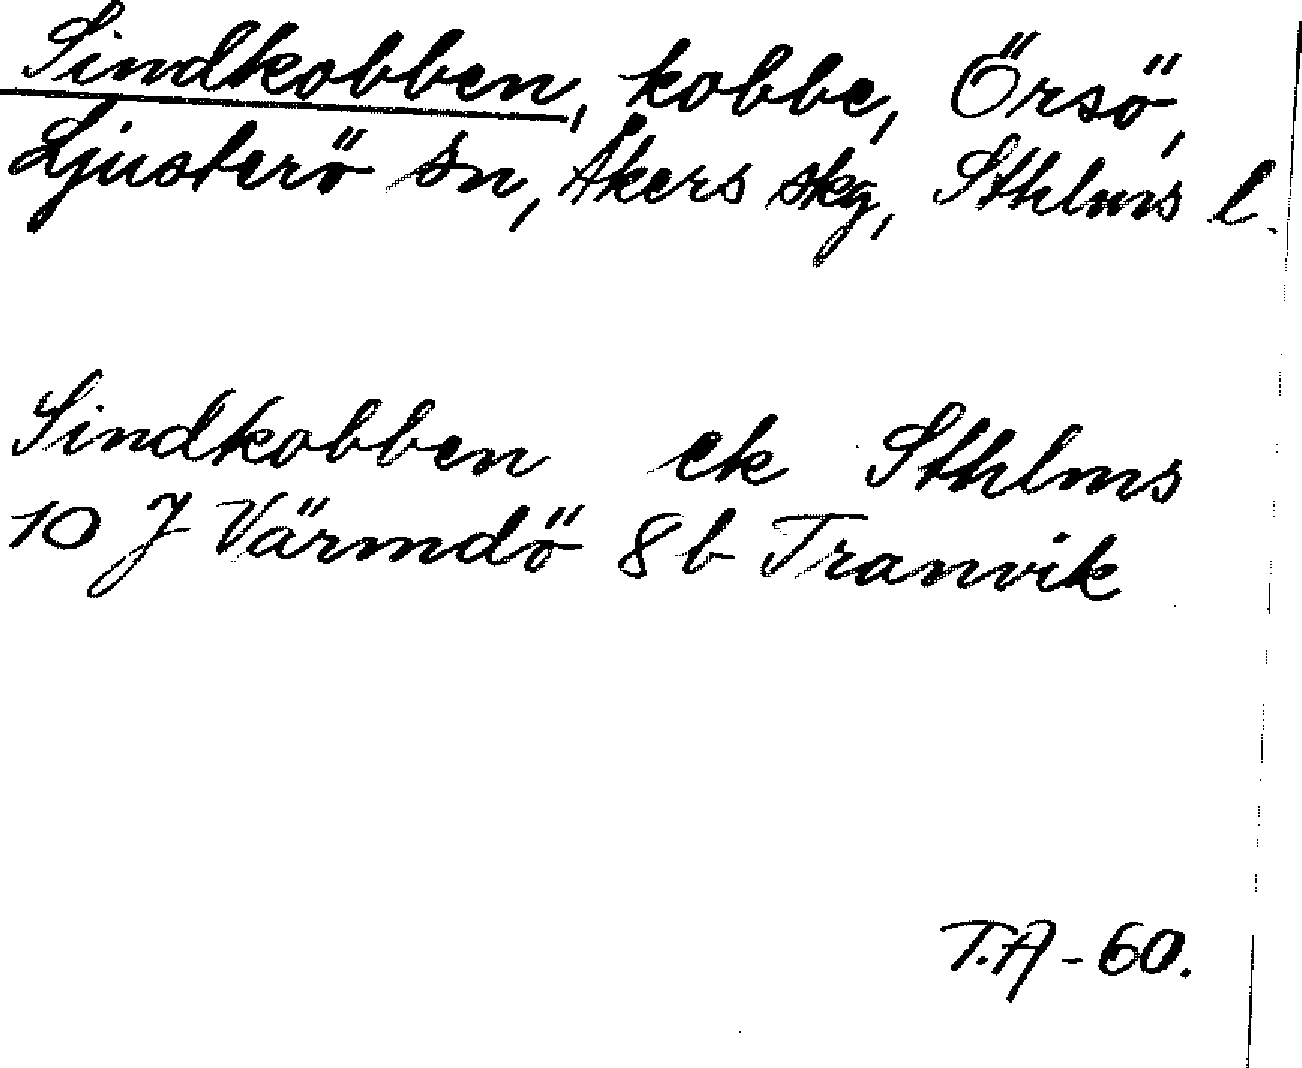 Sindkobben, kobbe, Örsö,
Ljusterö sn, Åkers skg, Sthlms l.
Sindkobben ek Sthlms
10 J Värmdö 8b Tranvik
T.A-60.